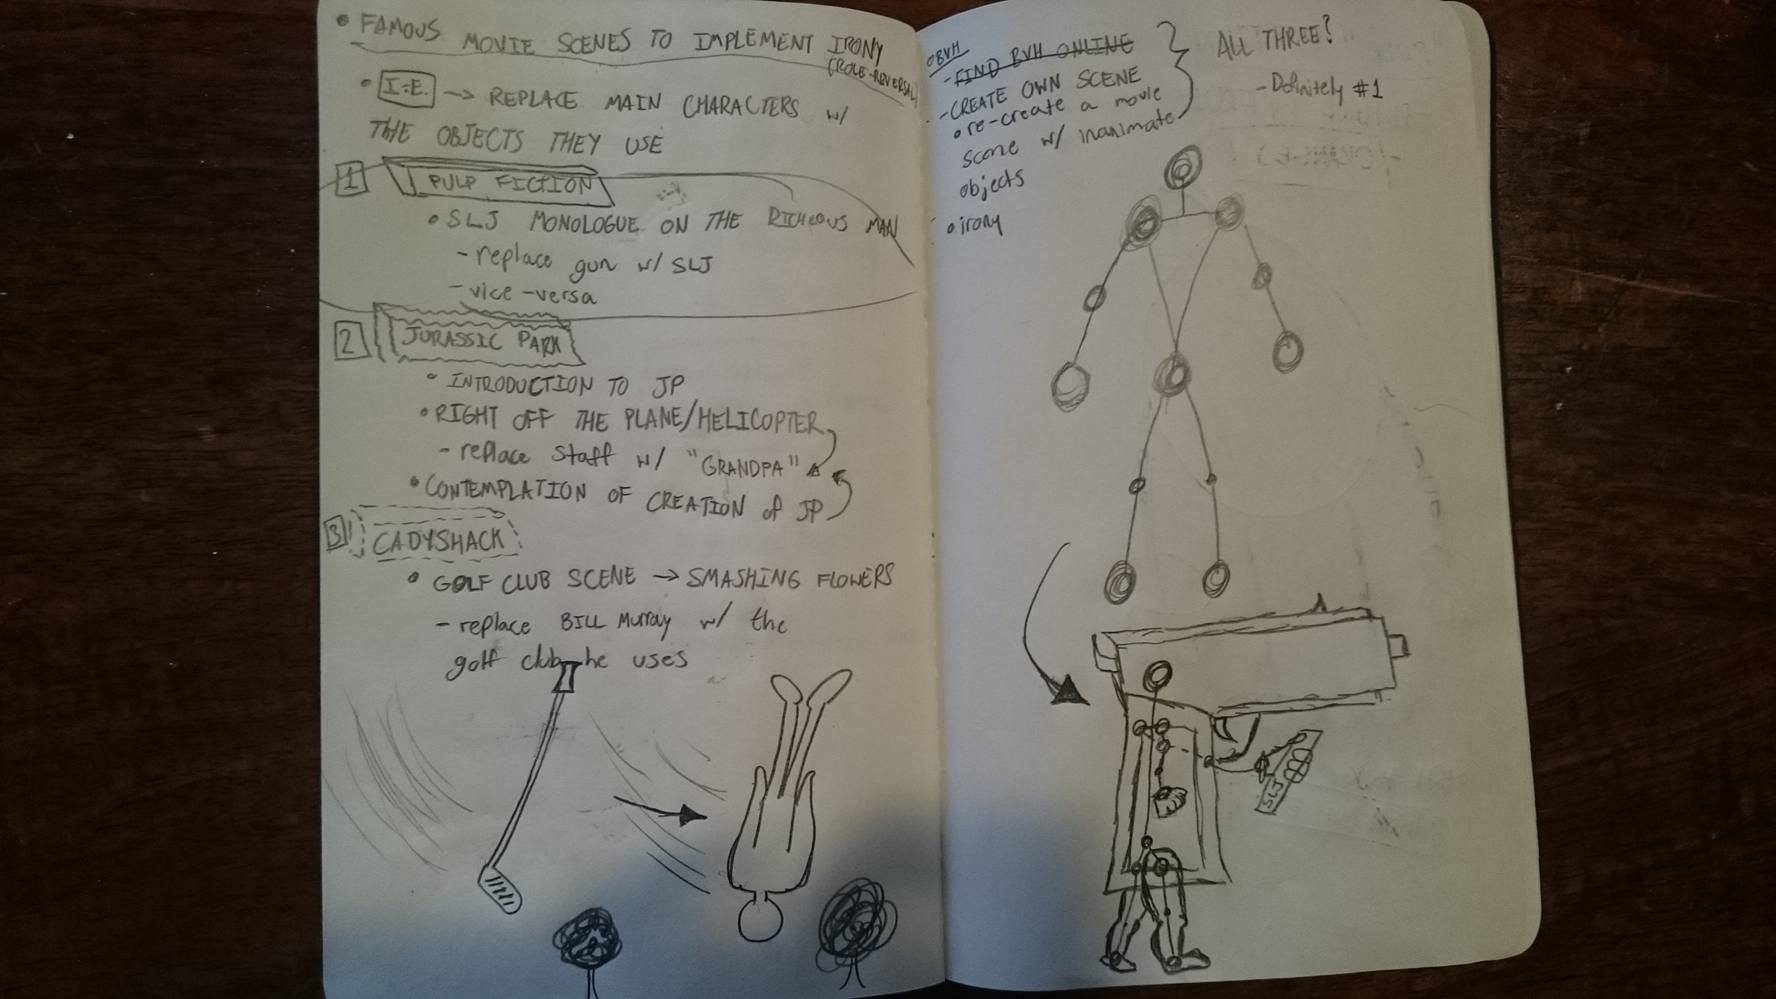 • FAMOUS MOVIE SCENES TO IMPLEMENT IRONY
(ROLE-REVERSAL)
• I.E. → REPLACE MAIN CHARACTERS w/
THE OBJECTS THEY USE
1 PULP FICTION
• SLJ MONOLOGUE ON THE RICHEOUS MAN
- replace gun w/ SLJ
- vice-versa
2 JURASSIC PARK
• INTRODUCTION TO JP
• RIGHT OFF THE PLANE/HELICOPTER
- replace staff w/ "GRANDPA"
• CONTEMPLATION OF CREATION of JP
3 CADYSHACK
• GOLF CLUB SCENE → SMASHING FLOWERS
- replace BILL Murray w/ the
golf club he uses
• BVH
- FIND BVH ONLINE
- CREATE OWN SCENE
• re-create a movie
scene w/ inanimate
objects
• irony
ALL THREE?
- Definitely #1
SLJ